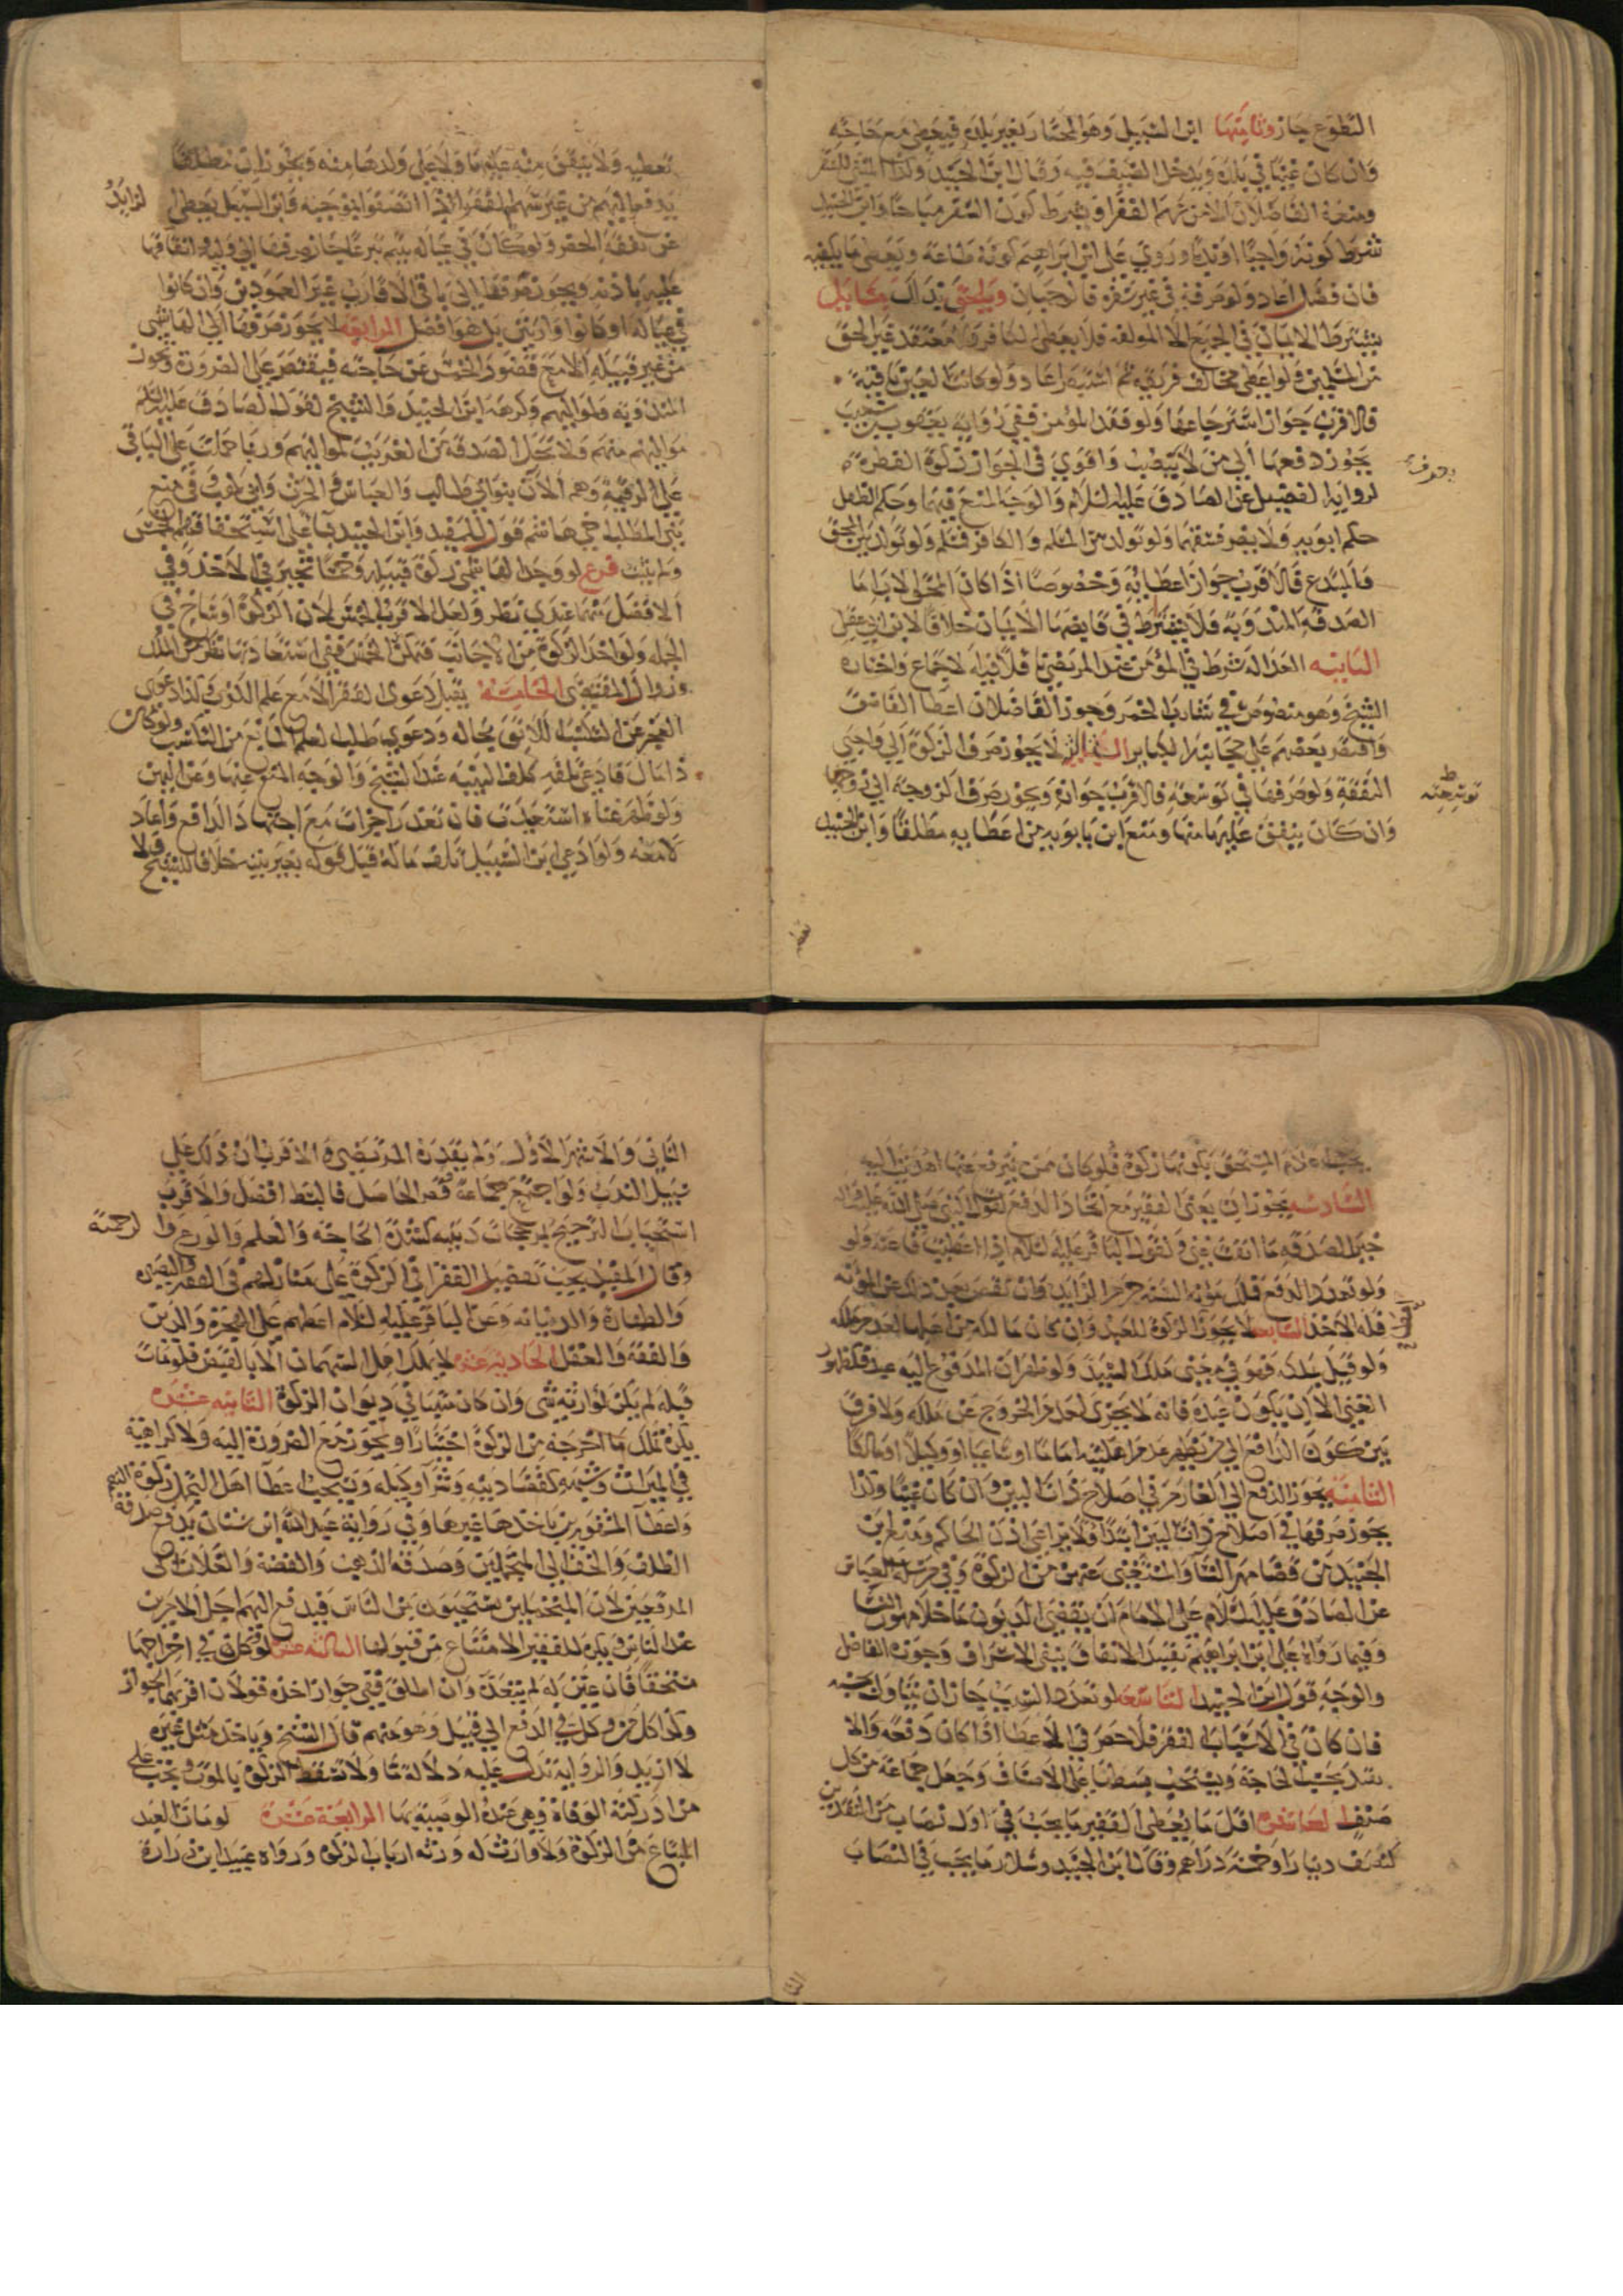 التطوع جاز وثامنها ابن السبيل وهو المجتاز بغير بلده فيعطى مع حاجته
وان كان غنيا في بلده ويدخل الضيف فيه وقال ابن الجنيد وكذا المنشئ للسفر
ومنعه الفاضلان الا من سهم الفقرا ويشرط كون السفر مباحا وابن الجنيد
شرط كونه واجبا او ندبا وروي علي ابن ابراهيم كونه طاعة ويعطى ما يكفيه
فان فضل اعاد ولو صرفه في غير سفره فالوجهان ويلحق بذلك مسايل
يشترط الايمان في الجميع الا المولفة فلا يعطى الكافر ولا معتقد غير الحق
من المسلمين ولو اعطى مخالف فريقه ثم استبصر اعاد ولو كانت العين باقية
فالاقرب جواز استرجاعها ولو فقد المؤمن ففي رواية يعقوب بن شعيب
يجوز دفعها الى من لا ينصب واقوى في الجواز زكوة الفطرة
لرواية الفضيل عن الصادق عليه السلام والوجه المنع فيهما وحكم الطفل
حكم ابويه ولا يضر فسقهما ولو تولد من المسلم والكافر فمسلم ولو تولد بين المحق
والمبتدع فالاقرب جواز اعطائه وخصوصا اذا كان المحق الاب اما
الصدقة المندوبة فلا يشترط في قابضها الايمان خلافا لابن ابي عقيل
الثانيه العدالة شرط في المؤمن عند المرتضى قلا فيه الاجماع واختاره
الشيخ وهو منصوص في شارب الخمر وجوز الفاضلان اعطا الفاسق
واقتصر بعضهم على مجانبة الكباير الثالثة لا يجوز صرف الزكوة الى واجبي
النفقة ولو صرفها في توسعة فالاقرب جوازه ويجوز صرف الزوجة الى زوجها
وان كان ينفق عليها منها ومنع ابن بابويه من اعطايه مطلقا وابن الجنيد
تعطيه ولا ينفق منه عليها ولا على ولدها منه ويجوز ان
يدفع اليهم من غير سهم الفقرا اذا اتصفوا بموجبه وابن السبيل يعطى الزايد
عن نفقة الحضر ولو كان في عياله يتيم تبرعا جاز صرفها الى وليه وانفاقها
عليه باذنه ويجوز صرفها الى باقي الاقارب غير العمودين وان كانوا
في عياله او كانوا وارثين بل هو افضل الرابعة لا يجوز صرفها الى الهاشمي
من غير قبيله الا مع قصور الخمس عن حاجته فيقتصر على الضرورة ويجوز
المندوبه ولمواليهم وكرهه ابن الجنيد والشيخ لقول الصادق عليه السلام
مواليهم منهم ولا تحل الصدقة من الغريب لمواليهم وربما حملت على الباقي
على الرقية وهم الان بنوابي طالب والعباس والحرث وابي لهب وفي منع
بني المطلب اخي هاشم قول للمفيد وابن الجنيد بنا على استحقاقهم الخمس
ولم يثبت فرع لو وجد الهاشمي زكوة قبيله وخمسا تخير في الاخذ وفي
الافضل منهما عندي نظر ولعل الاقرب الخمس لان الزكوة اوساخ في
الجمله ولو اخذ الزكوة من الاجانب فتمكن الخمس ففي استعادتها نظر من الملك
وزوال المقتضى الخامسة يقبل دعوى الفقر الا مع علم الكذب وكذا دعوى
العجز عن التكسب اللايق بحاله ودعوى طلب العلم المانع من التكسب ولو كان
ذا مال فادعى تلفه كلف البينه عند الشيخ والوجه المنع عنها وعن اليمين
ولو ظهر غناه استعيدت فان تعذر اجزات مع اجتهاد الدافع واعاد
لا معه ولو ادعى ابن السبيل تلف ماله قبل قوله بغير بينه خلافا للشيخ ولا
يجب اعلام المستحق بكونها زكوة فلو كان ممن يترفع عنها اهديت اليه
السادسه يجوز ان يغنى الفقير مع اتحاد الدفع لقول النبي صلى الله عليه واله
خير الصدقه ما ابقت غنى ولقول الباقر عليه السلام اذا اعطيت فاغنه ولو
ولو تعدد الدفع فملك مؤنة السنه حرم الزايد وان نقص بعد ذلك عن المؤنه
فله الاخذ السابعه لا يجوز الزكوة للعبد وان كان مالكه من اهلها لعدم ملكه
ولو قيل بملكه فهو في معنى ملك السيد ولو ظهر ان المدفوع اليه عبد فكظهور
الغنى الا ان يكون عبده فانه لا يجزى لعدم الخروج عن ملكه ولا فرق
بين كون الدافع الى من يظهر عدم اهليته اماما او ساعيا او وكيلا او مالكا
الثامنة يجوز الدفع الى الغارم في اصلاح ذات البين وان كان غنيا وكذا
يجوز صرفها في اصلاح ذات البين ابتدا ولا يراعى اذن الحاكم ومنع ابن
الجنيد من قضا مهر النسا والمستغنى عنهن من الزكوة وفي مرسلة العباس
عن الصادق عليه السلام على الامام ان يقضي الديون ما خلا مهور النسا
وفيما رواه علي ابن ابراهيم تقييد الانفاق بنفي الاسراف وجوزه الفاضل
والوجه قول ابن الجنيد التاسعه لو تعدد السبب جاز ان يتناول بحسبه
فان كان في الاسباب الفقر فلا حصر في الاعطا اذا كان دفعه والا
فقدر بحسب الحاجة ويستحب بسطها على الاصناف وجعل جماعة من كل
صنف العاشره اقل ما يعطى الفقير ما يجب في اول نصاب من النقدين
كنصف دينار او خمسة دراهم وقال ابن الجنيد وسلار ما يجب في النصاب
الثاني والاشهر الاول ولم يقدره المرتضى والاقرب ان ذلك على
سبيل الندب ولو اجتمع جماعة قصر الحاصل فالبسط افضل والاقرب
استحباب الترجيح لمرجحات دينيه كشدة الحاجه والعلم والورع والرحمة
وقال المفيد يجب تفضيل الفقرا في الزكوة على منازلهم في الفقه والبصيره
والطهارة والديانه وعن الباقر عليه السلام اعطهم على الهجرة والدين
والفقه والعقل الحادية عشرة لا يملك اهل السهمان الا بالقبض فلو مات
قبله لم يكن لوارثه شي وان كان مثبتا في ديوان الزكوة الثانيه عشرة
يكره تملك ما اخرجه من الزكوة اختيارا ويجوز مع الضرورة اليه ولا كراهية
في الميراث وشبهه كقضا دينه وشرا وكيله ويستحب اعطا اهل التجمل زكوة النعم
واعطا المتوفرين باخذها غيرها وفي رواية عبد الله ابن سنان يدفع صدقة
الظلف والخف الى المتجملين وصدقه الذهب والفضة والغلات الى
المدقعين لان المتجملين يستحيون من الناس فيدفع اليهم اجل الامرين
عند الناس ويكره للفقير الامتناع من قبولها الثالثه عشر لو وكل في اخراجها
مستحقا فان عين له لم يتعده وان اطلق ففي جواز اخذه قولان اقربهما الجواز
وكذا كل من وكل في الدفع الى قبيل وهو منهم قال الشيخ وياخذ مثل غيره
لا ازيد والرواية تدل عليه دلالة ما ولا تسقط الزكوة بالموت ويجب على
من ادركته الوفاة وهي عنده الوصية بها الرابعة عشرة لو مات العبد
المبتاع من الزكوة ولا وارث له ورثه ارباب الزكوة ورواه عبيد ابن زرارة